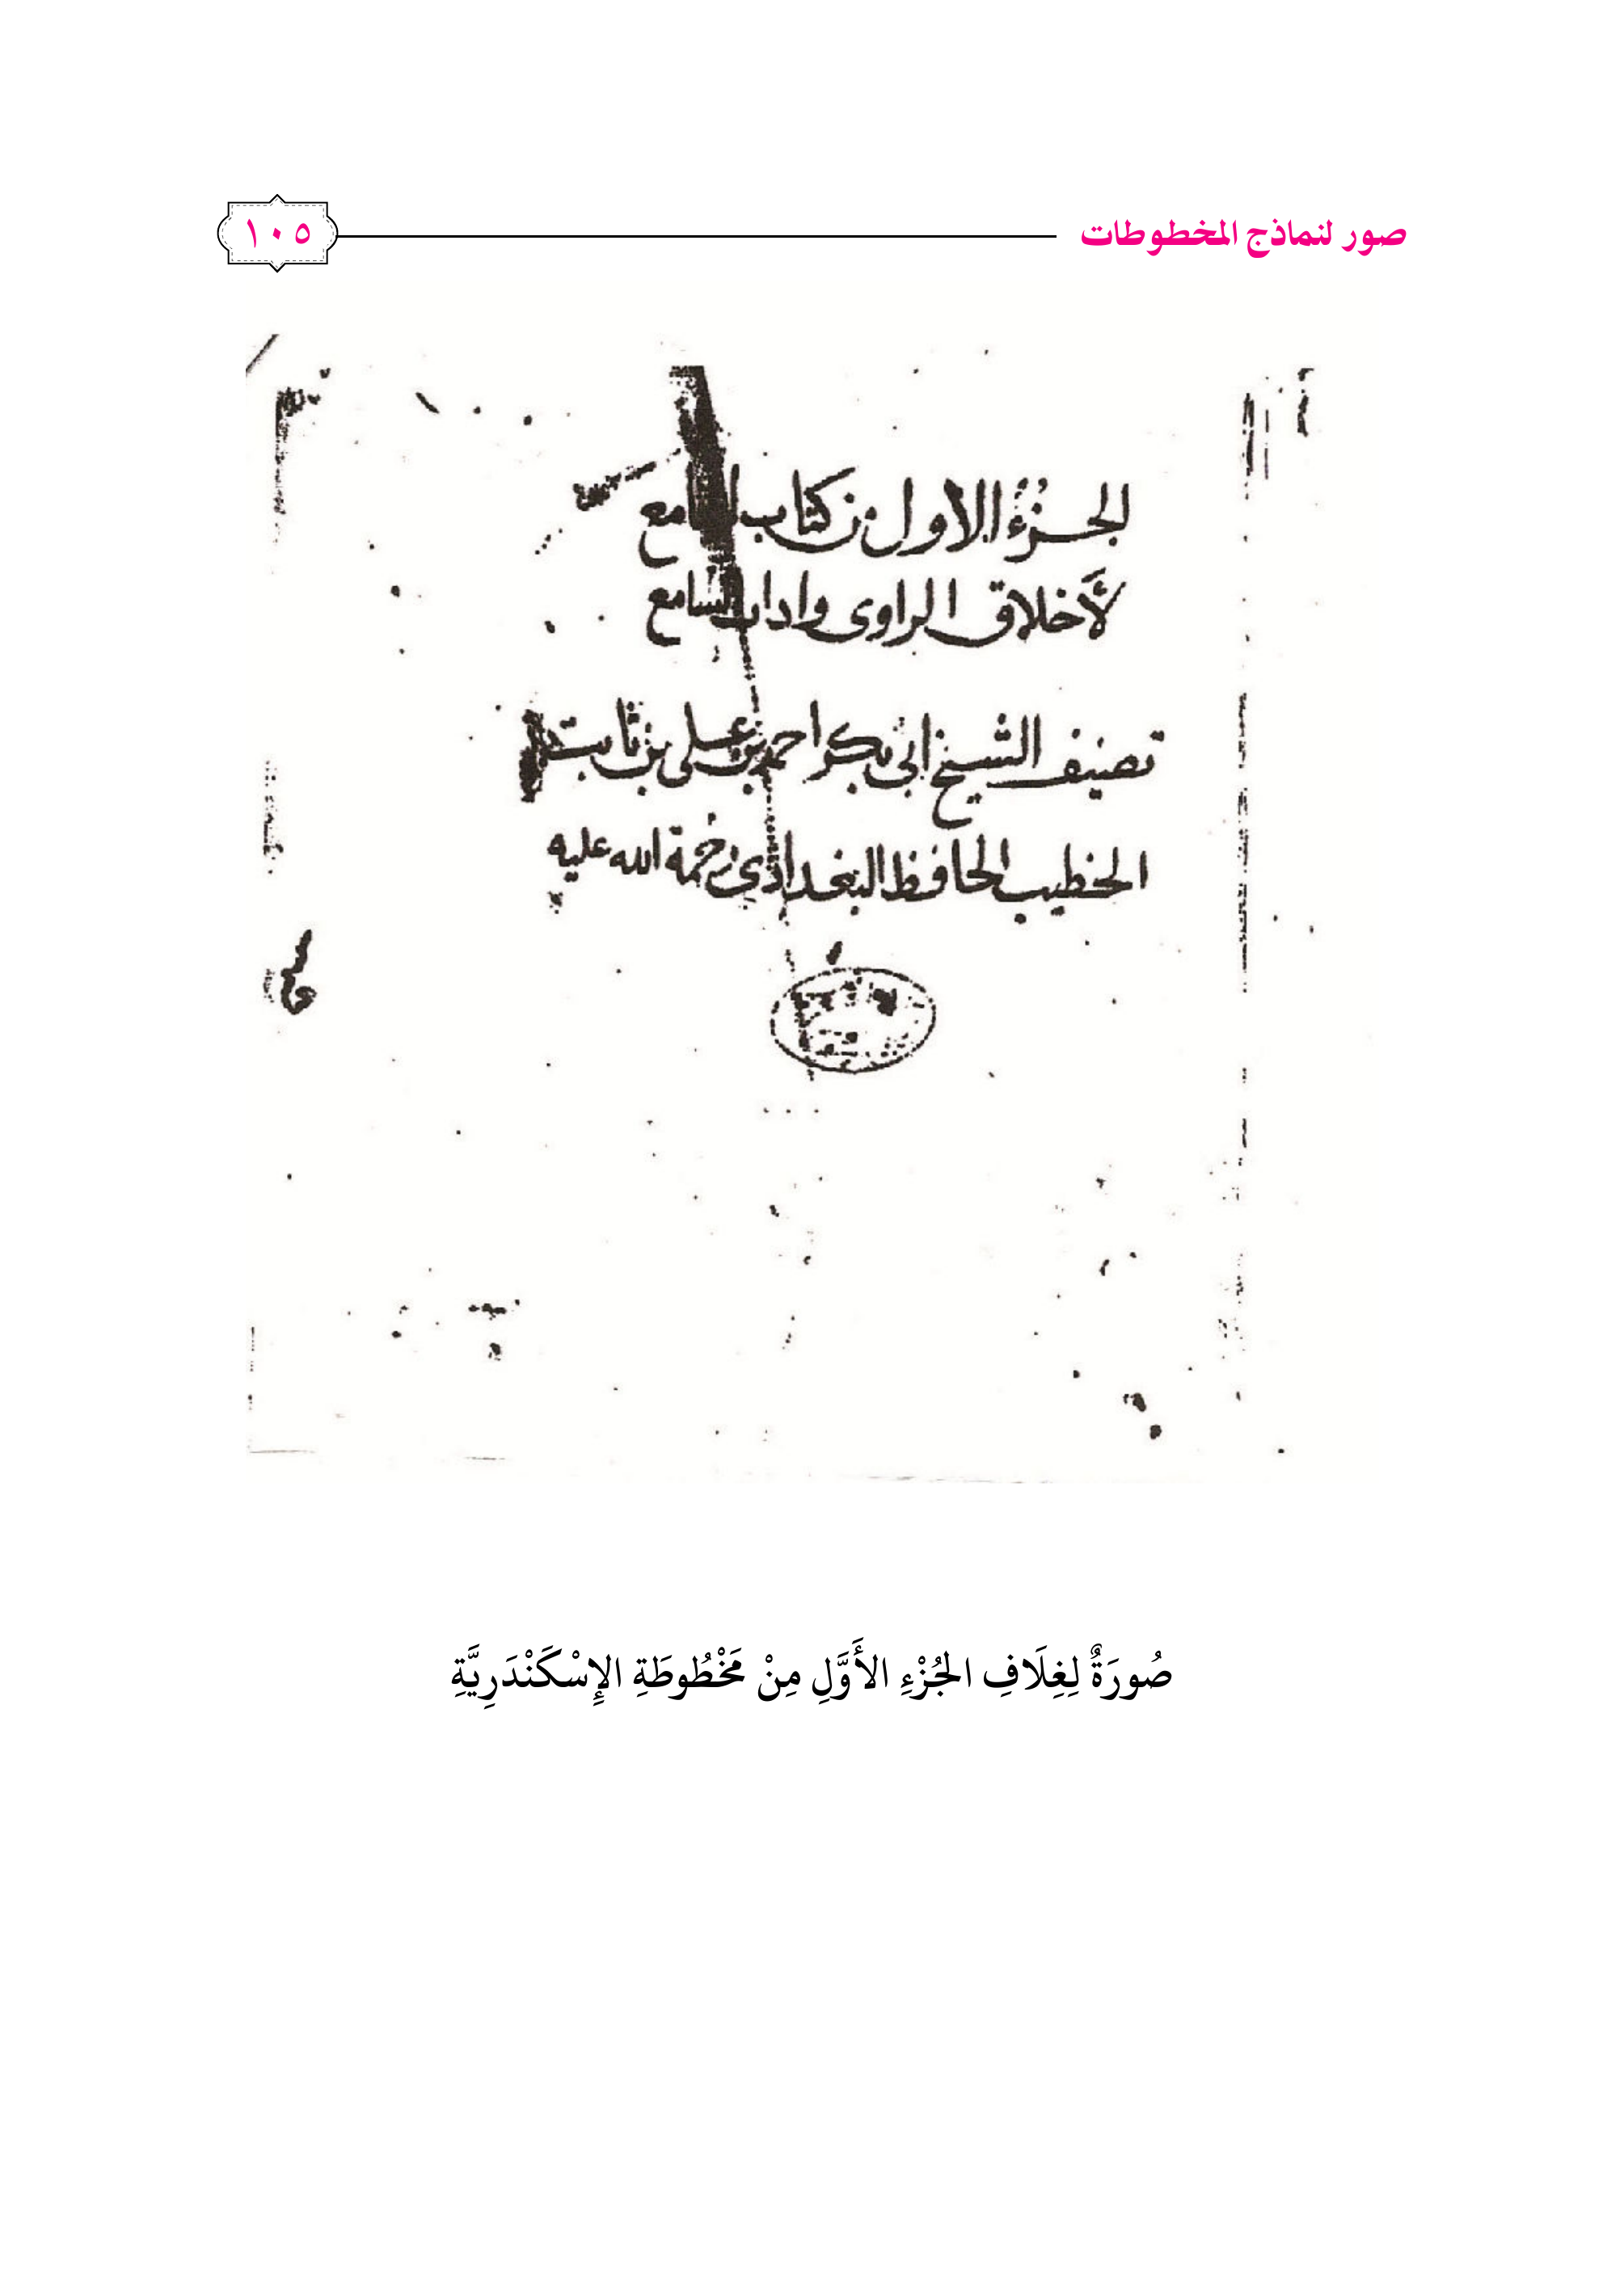 صور لنماذج المخطوطات
١٠٥
الجزء الاول من كتاب الجامع
لأخلاق الراوى واداب السامع
تصنيف الشيخ ابى بكر احمد بن على بن ثابت
الخطيب الحافظ البغدادى رحمة الله عليه
صُورَةٌ لِغِلَافِ الجُزْءِ الأَوَّلِ مِنْ مَخْطُوطَةِ الإِسْكَنْدَرِيَّةِ